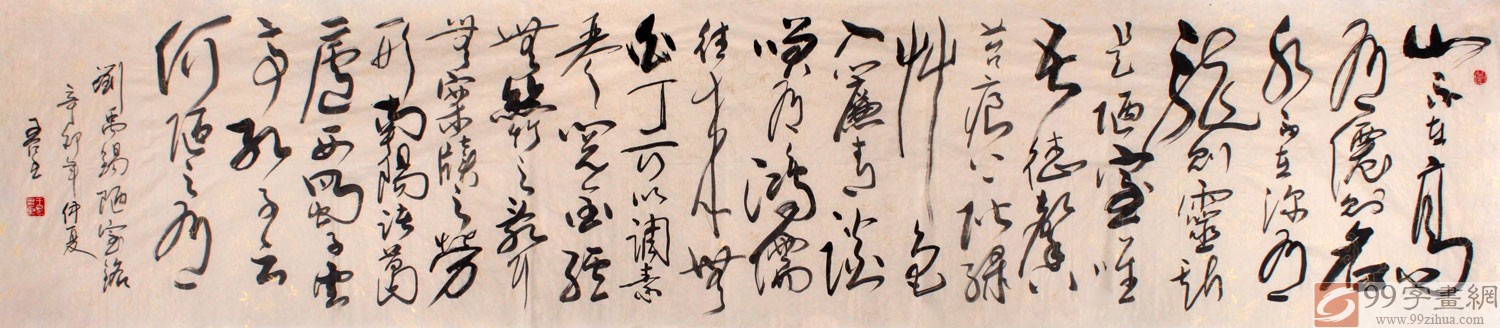 山不在高
有僊則名
水不在深有
龍則靈斯
是陋室唯
吾德馨
苔痕上階綠
艸色
入簾青談
笑有鴻儒
往來無
白丁可以調素
琴閱金經
無絲竹之亂耳
無案牘之勞
形南陽諸葛
廬西蜀子雲
亭孔子云
何陋之有
劉禹錫陋室銘
辛卯年仲夏
99字畫網
www.99zihua.com